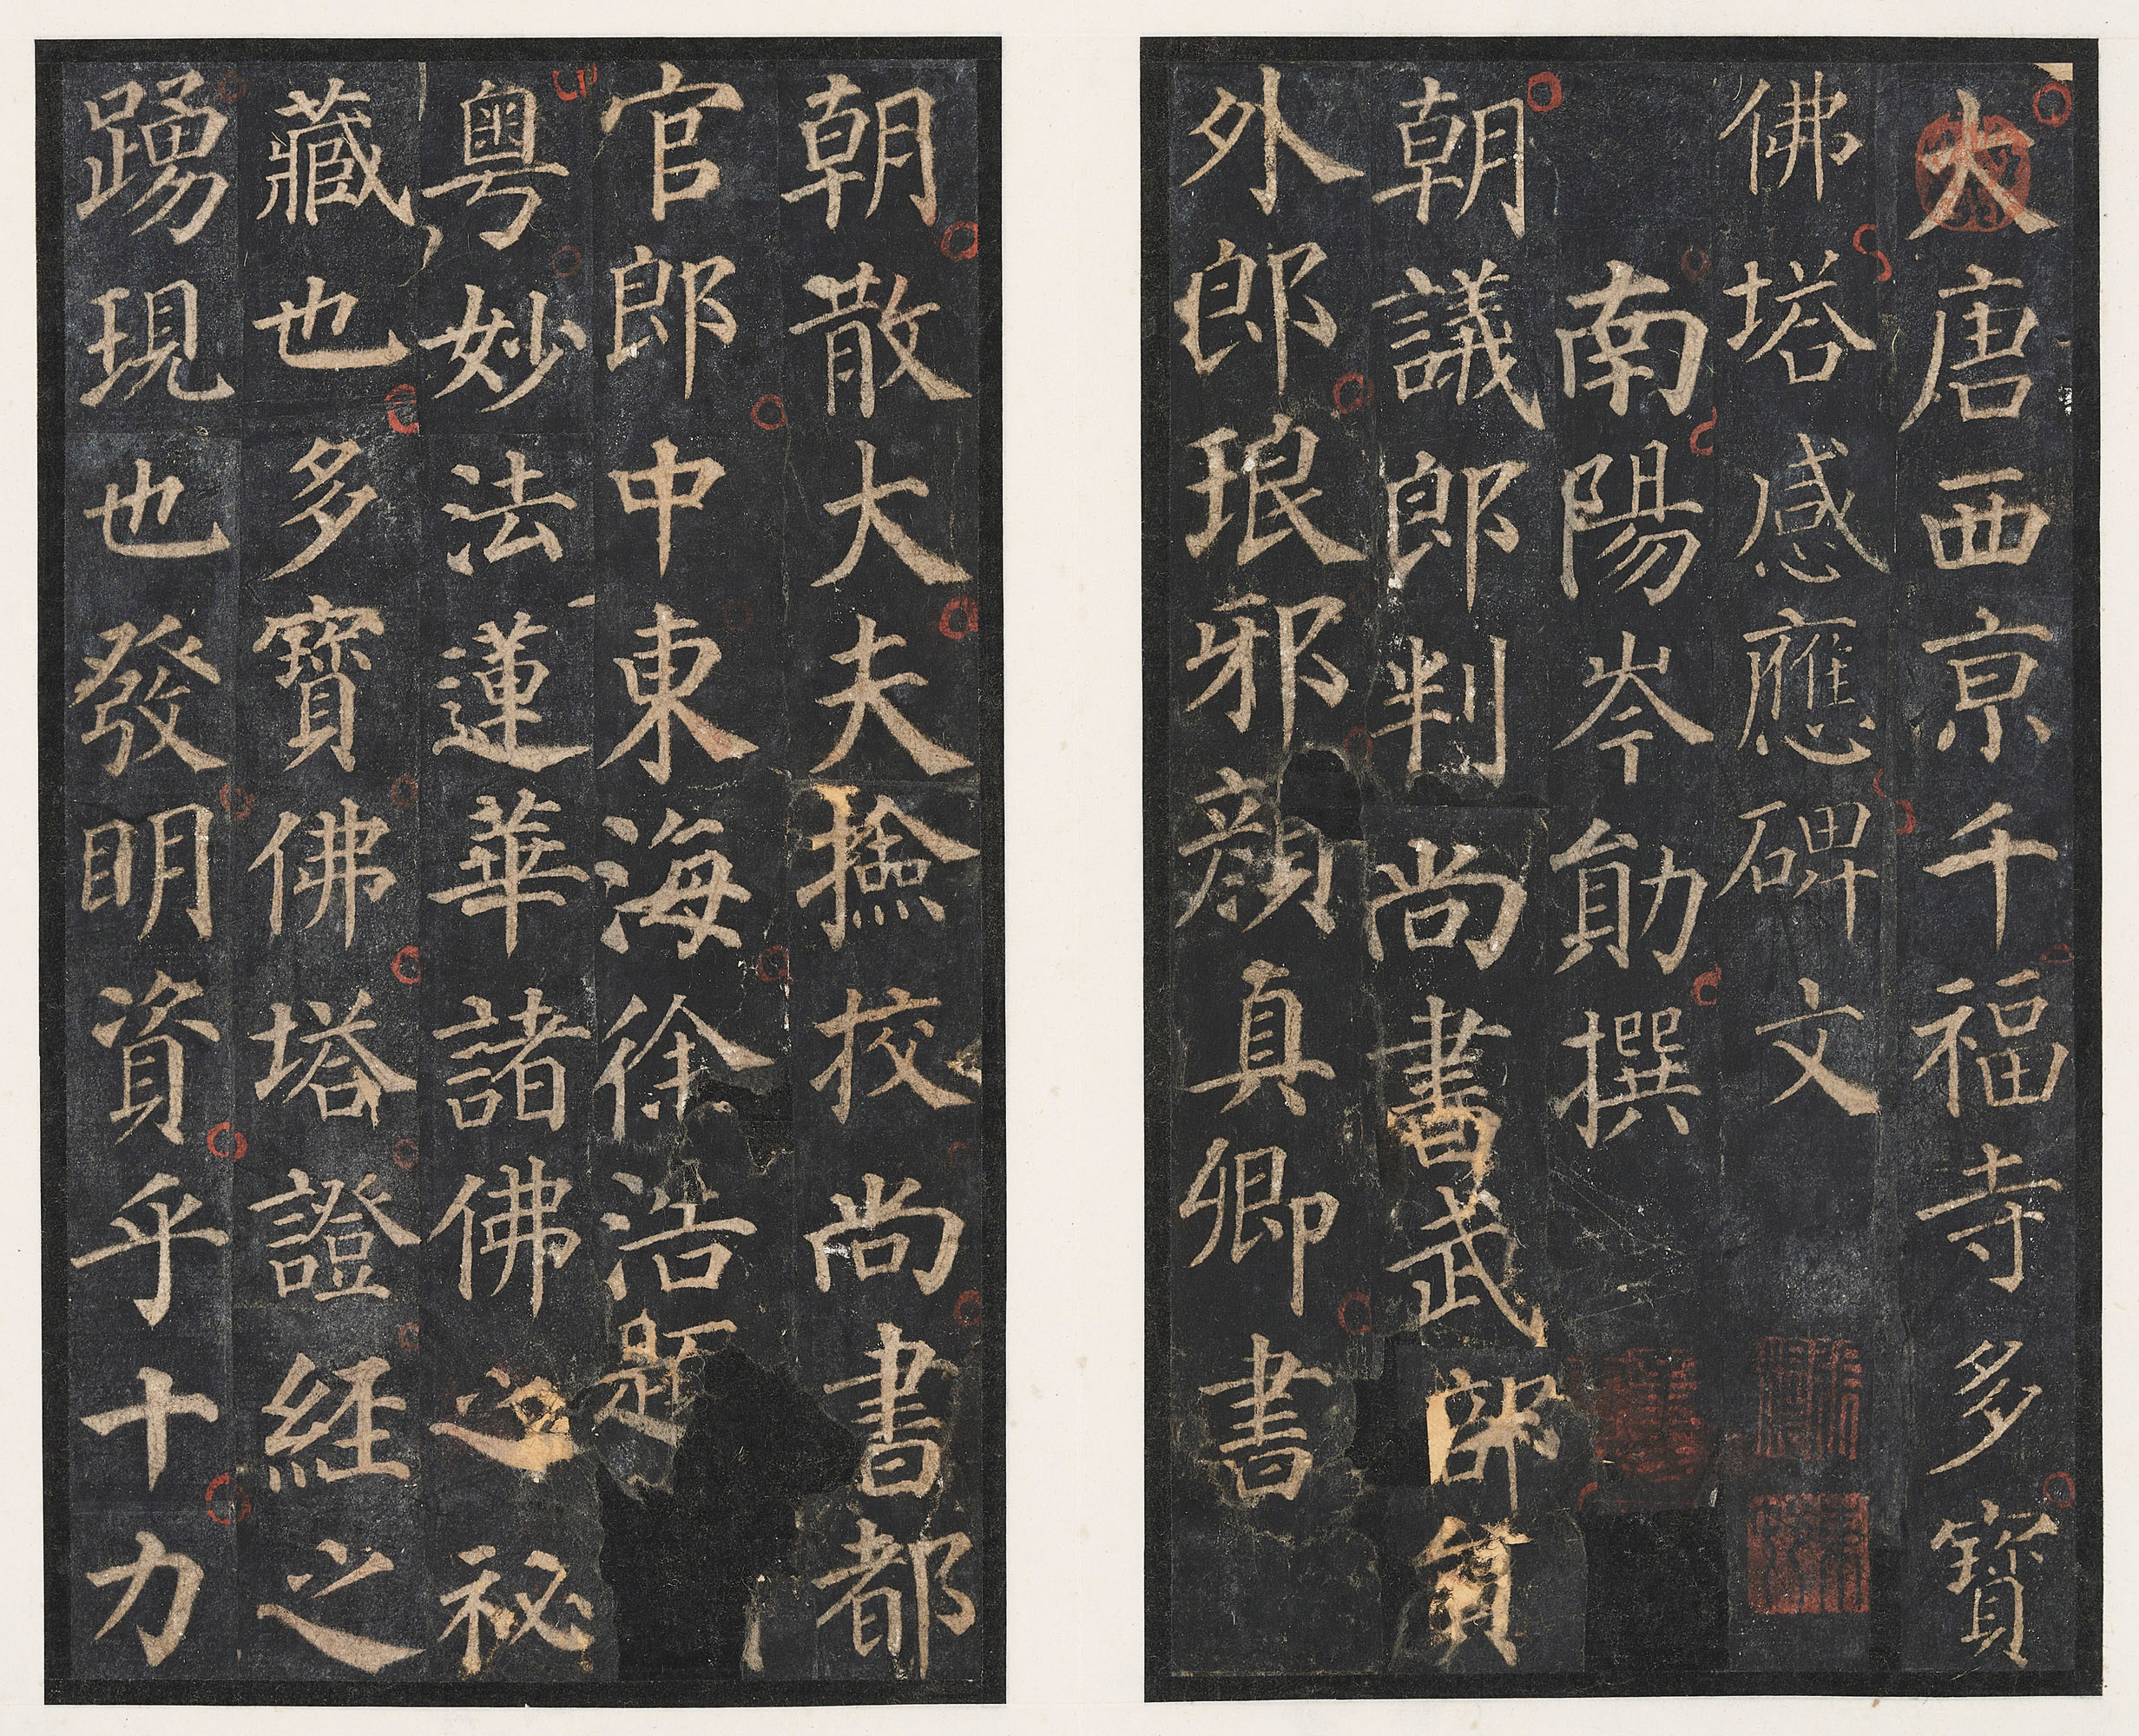 大唐西京千福寺多寶
佛塔感應碑文
南陽岑勛撰
朝議郎判尚書武部員
外郎琅邪顏真卿書
朝散大夫撿挍尚書都
官郎中東海徐浩題
粵妙法蓮華諸佛之秘
藏也多寶佛塔證經之
踴現也發明資乎十力